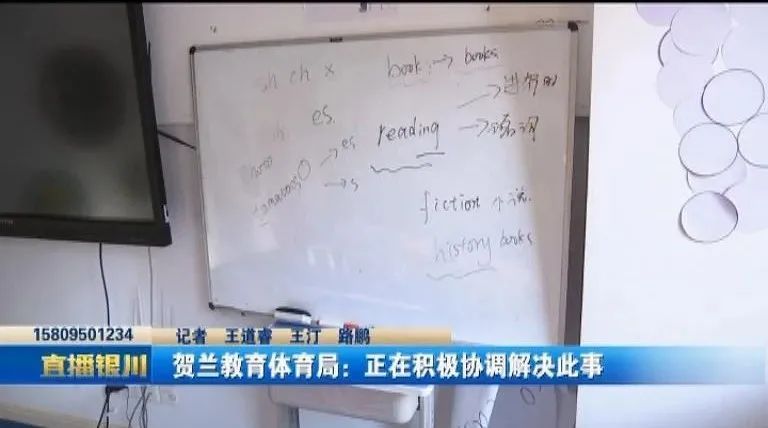 sh ch x
book → books
→ 进行时
es
reading → 动名词
→ es
→ s
fiction 小说.
history books
15809501234 记者 王道睿 王汀 路鹏
直播银川 贺兰教育体育局：正在积极协调解决此事